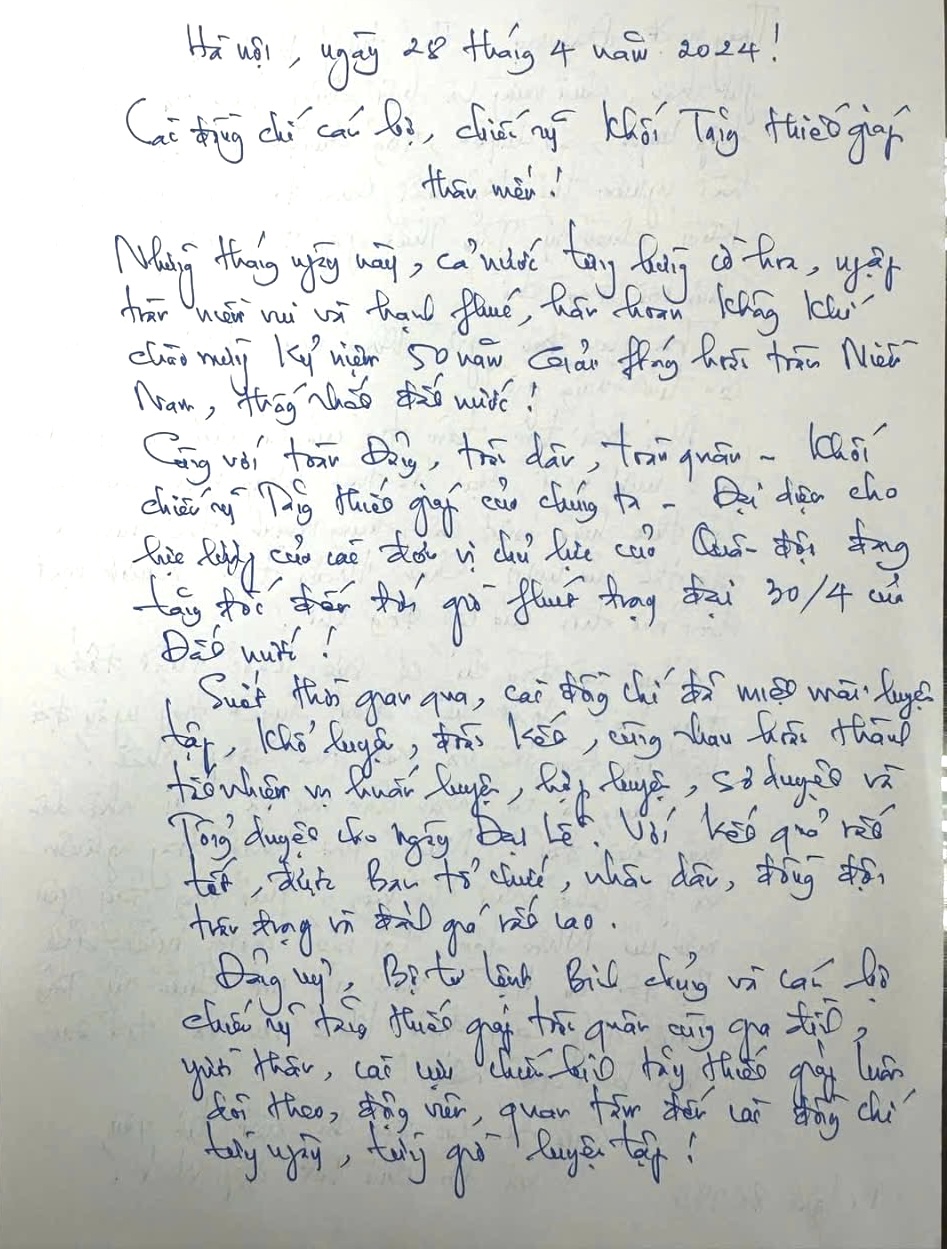 Hà nội, ngày 28 tháng 4 năm 2024!
Các đồng chí cán bộ, chiến sỹ khối Tăng thiết giáp
thân mến!
Những tháng ngày này, cả nước tưng bừng cờ hoa, ngập
tràn niềm vui và hạnh phúc, hân hoan không khí
chào mừng Kỷ niệm 50 năm Giải phóng hoàn toàn Miền
Nam, thống nhất đất nước!
Cùng với toàn Đảng, toàn dân, toàn quân - Khối
chiến sỹ Tăng thiết giáp của chúng ta - Đại diện cho
lực lượng của các đơn vị chủ lực của Quân đội đang
từng bước đến giờ phút trọng đại 30/4 của
Đất nước!
Suốt thời gian qua, các đồng chí đã miệt mài luyện
tập, khổ luyện, đoàn kết, cùng nhau hoàn thành
tốt nhiệm vụ huấn luyện, hợp luyện, sơ duyệt và
Tổng duyệt cho ngày Đại lễ. Với kết quả rất
tốt, được Ban tổ chức, nhân dân, đồng đội
trân trọng và đánh giá rất cao.
Đảng uỷ, Bộ tư lệnh Binh chủng và cán bộ
chiến sỹ tăng thiết giáp toàn quân cùng gia đình,
người thân, các cựu chiến binh tăng thiết giáp luôn
dõi theo, động viên, quan tâm đến các đồng chí
từng ngày, từng giờ luyện tập!